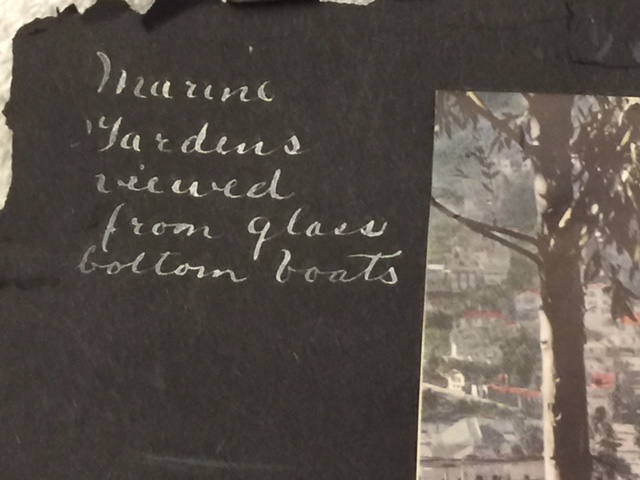 Marine
Gardens
viewed
from glass
bottom boats